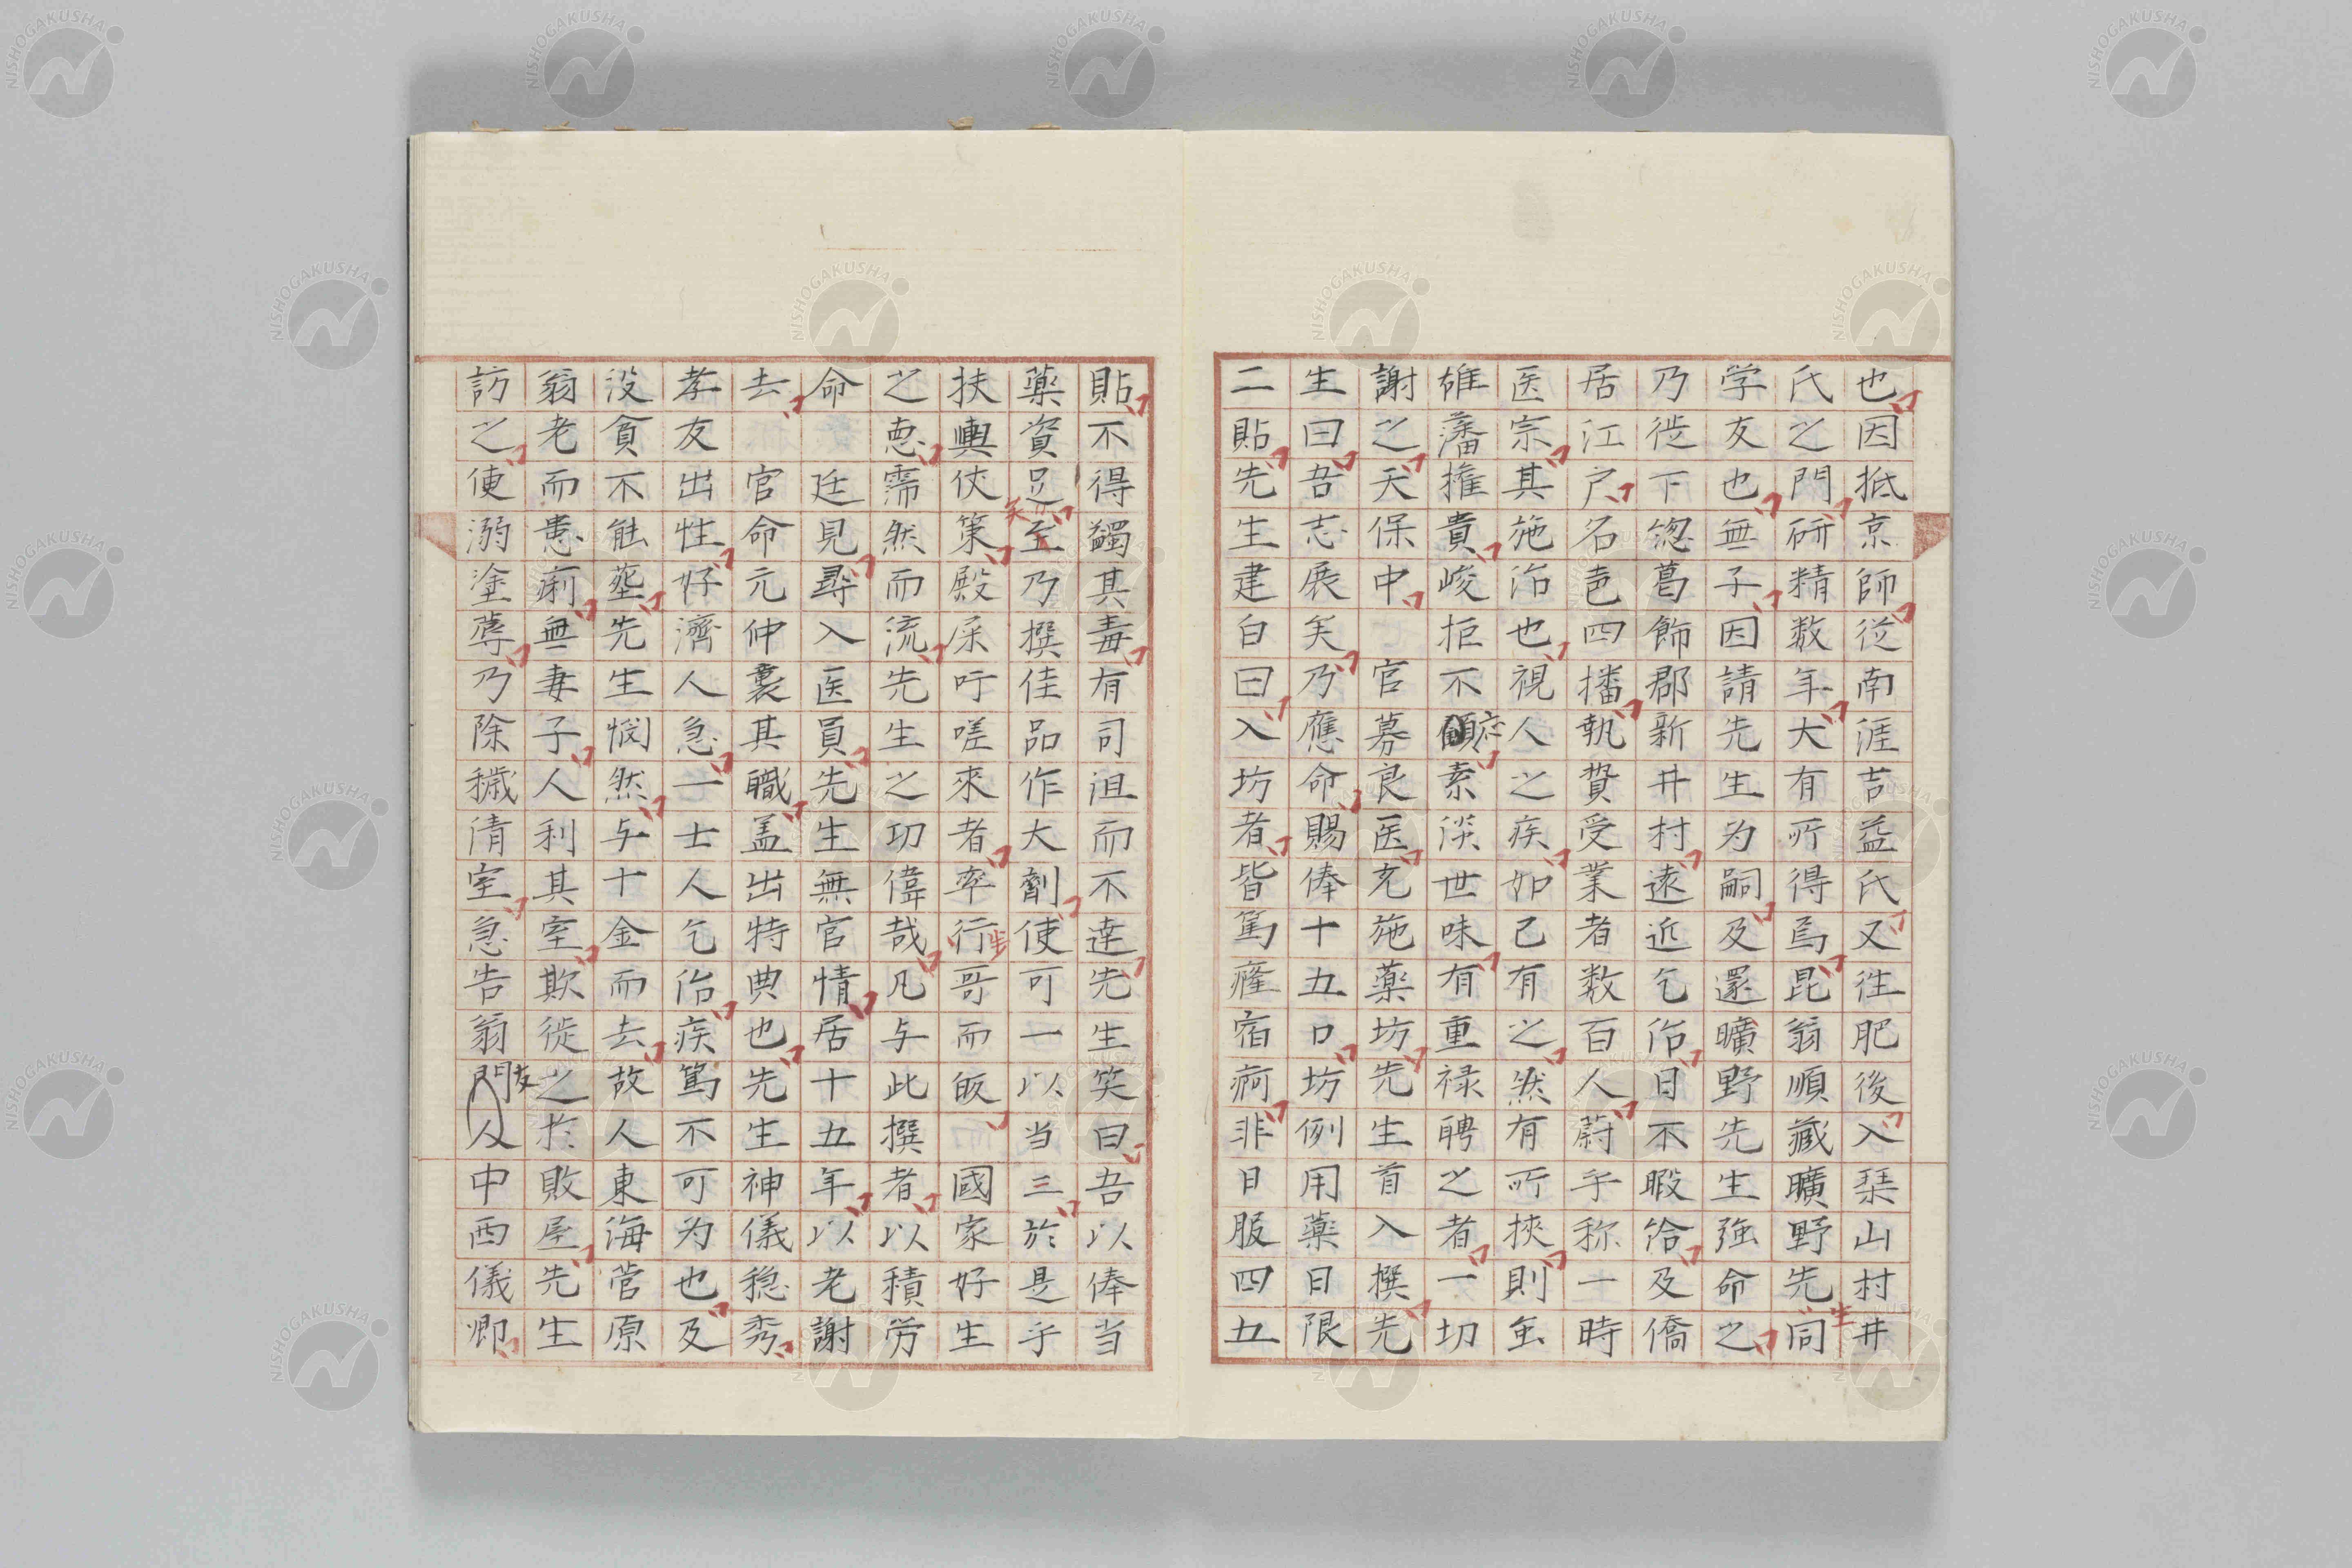 也因抵京師從南涯吉益氏又往肥後入琹山村井
氏之門研精数年大有所得焉昆翁順藏曠野先生同
学友也無子因請先生为嗣及還曠野先生強命之
乃徙下総葛飾郡新井村遠近乞治日不暇給及僑
居江戸名邑四播執贄受業者数百人蔚乎称一時
医宗其施治也視人之疾如己有之然有所挾則虽
雄藩擁貴峻拒不應素淡世味有重禄聘之者一切
謝之天保中 官募良医充施薬坊先生首入撰先
生曰吾志展矣乃應命賜俸十五口坊例用薬日限
二貼先生建白曰入坊者皆篤癃宿痾非日服四五
貼不得蠲其毒有司沮而不達先生笑曰吾以俸当
薬資足矣乃撰佳品作大劑使可一以当三於是乎
扶輿使策殿屎吁嗟來者率行哥而皈 國家好生
之恵霈然而流先生之功偉哉凡与此撰者以積労
命 廷見尋入医員先生無官情居十五年以老謝
去 官命元仲襲其職盖出特典也先生神儀穏秀
孝友出性好濟人急一士人乞治疾篤不可为也及
没貧不能葬先生憫然与十金而去故人東海菅原
翁老而患痢無妻子人利其室欺徙之於敗屋先生
訪之便溺塗蓐乃除穢清室急告翁友人中西儀卿
NISHOGAKUSHA